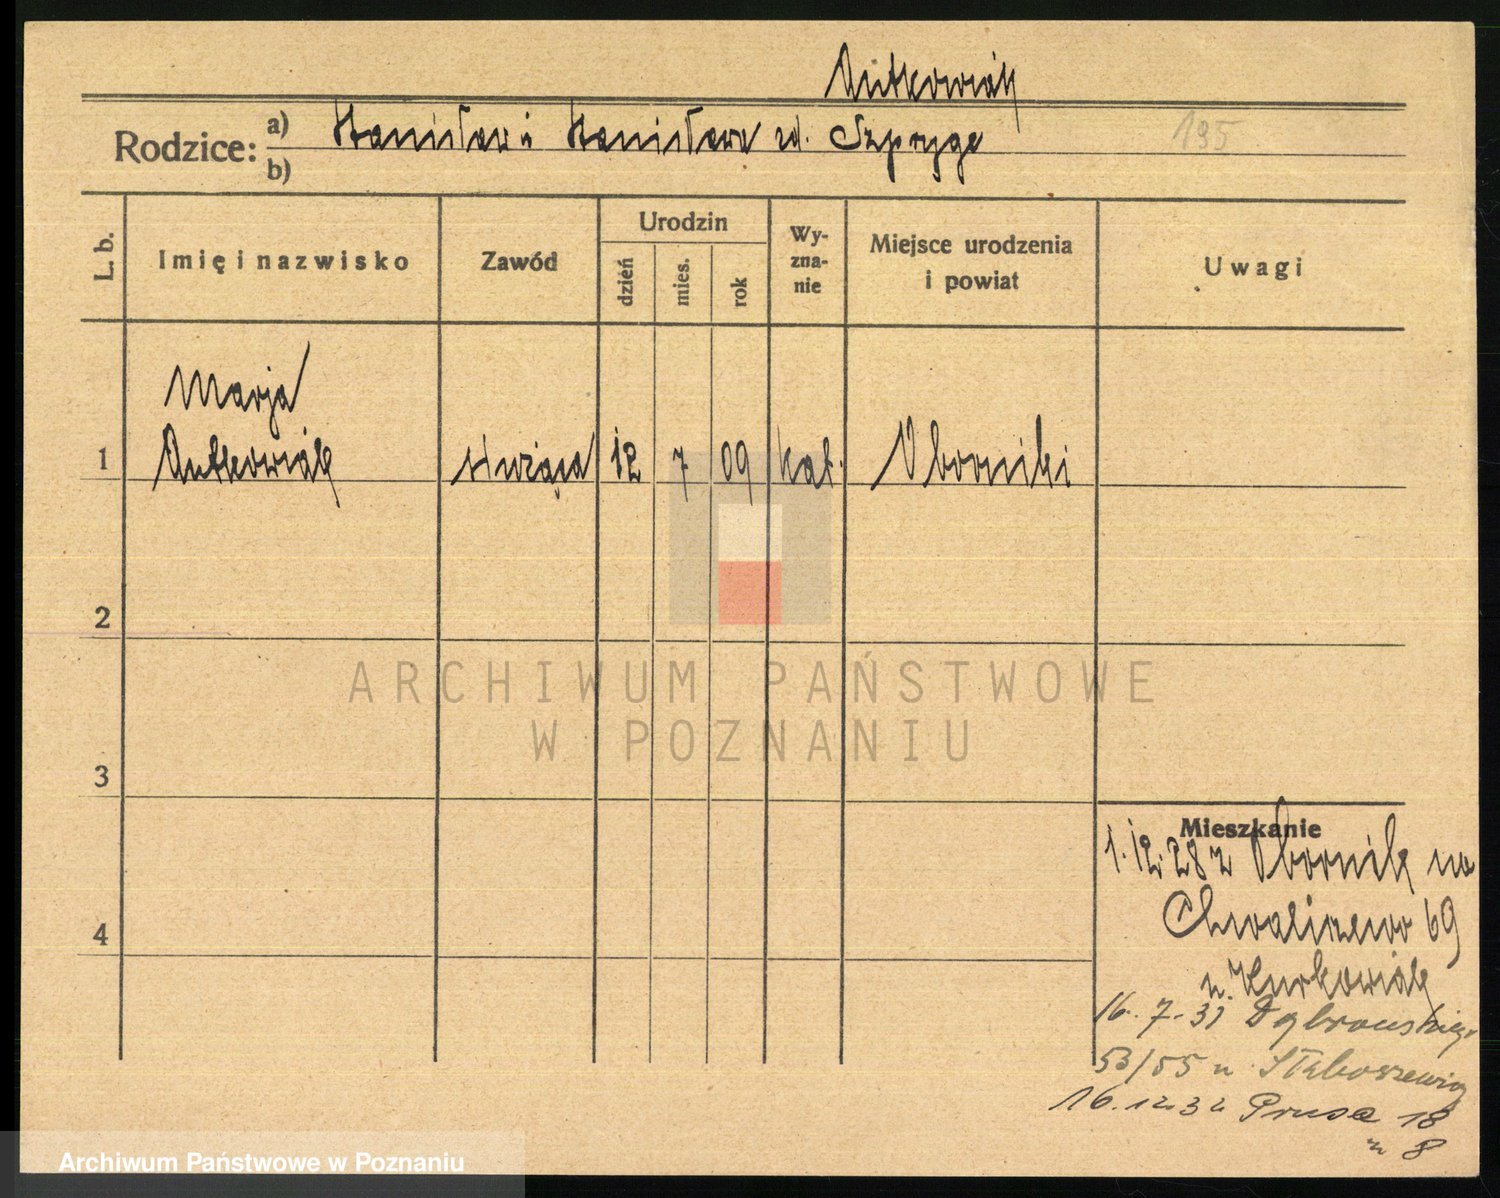 Antkowiak
Rodzice: a) Stanisław i Stanisława zd. Szpryga
195
b)
L. b.
Imię i nazwisko
Zawód
Urodzin
dzień
mies.
rok
Wy-
zna-
nie
Miejsce urodzenia
i powiat
Uwagi
Marja
1 Antkowiak służąca 12 7 09 kat. Oborniki
2
3
4
Mieszkanie
1.12.28 z Obornik na
Chwaliszewo 69
u. Kurkowiak
16.7.31 Dąbrowskiego
53/55 u
16.12.32 Prusa 18
m 8
ARCHIWUM PAŃSTWOWE
W POZNANIU
Archiwum Państwowe w Poznaniu